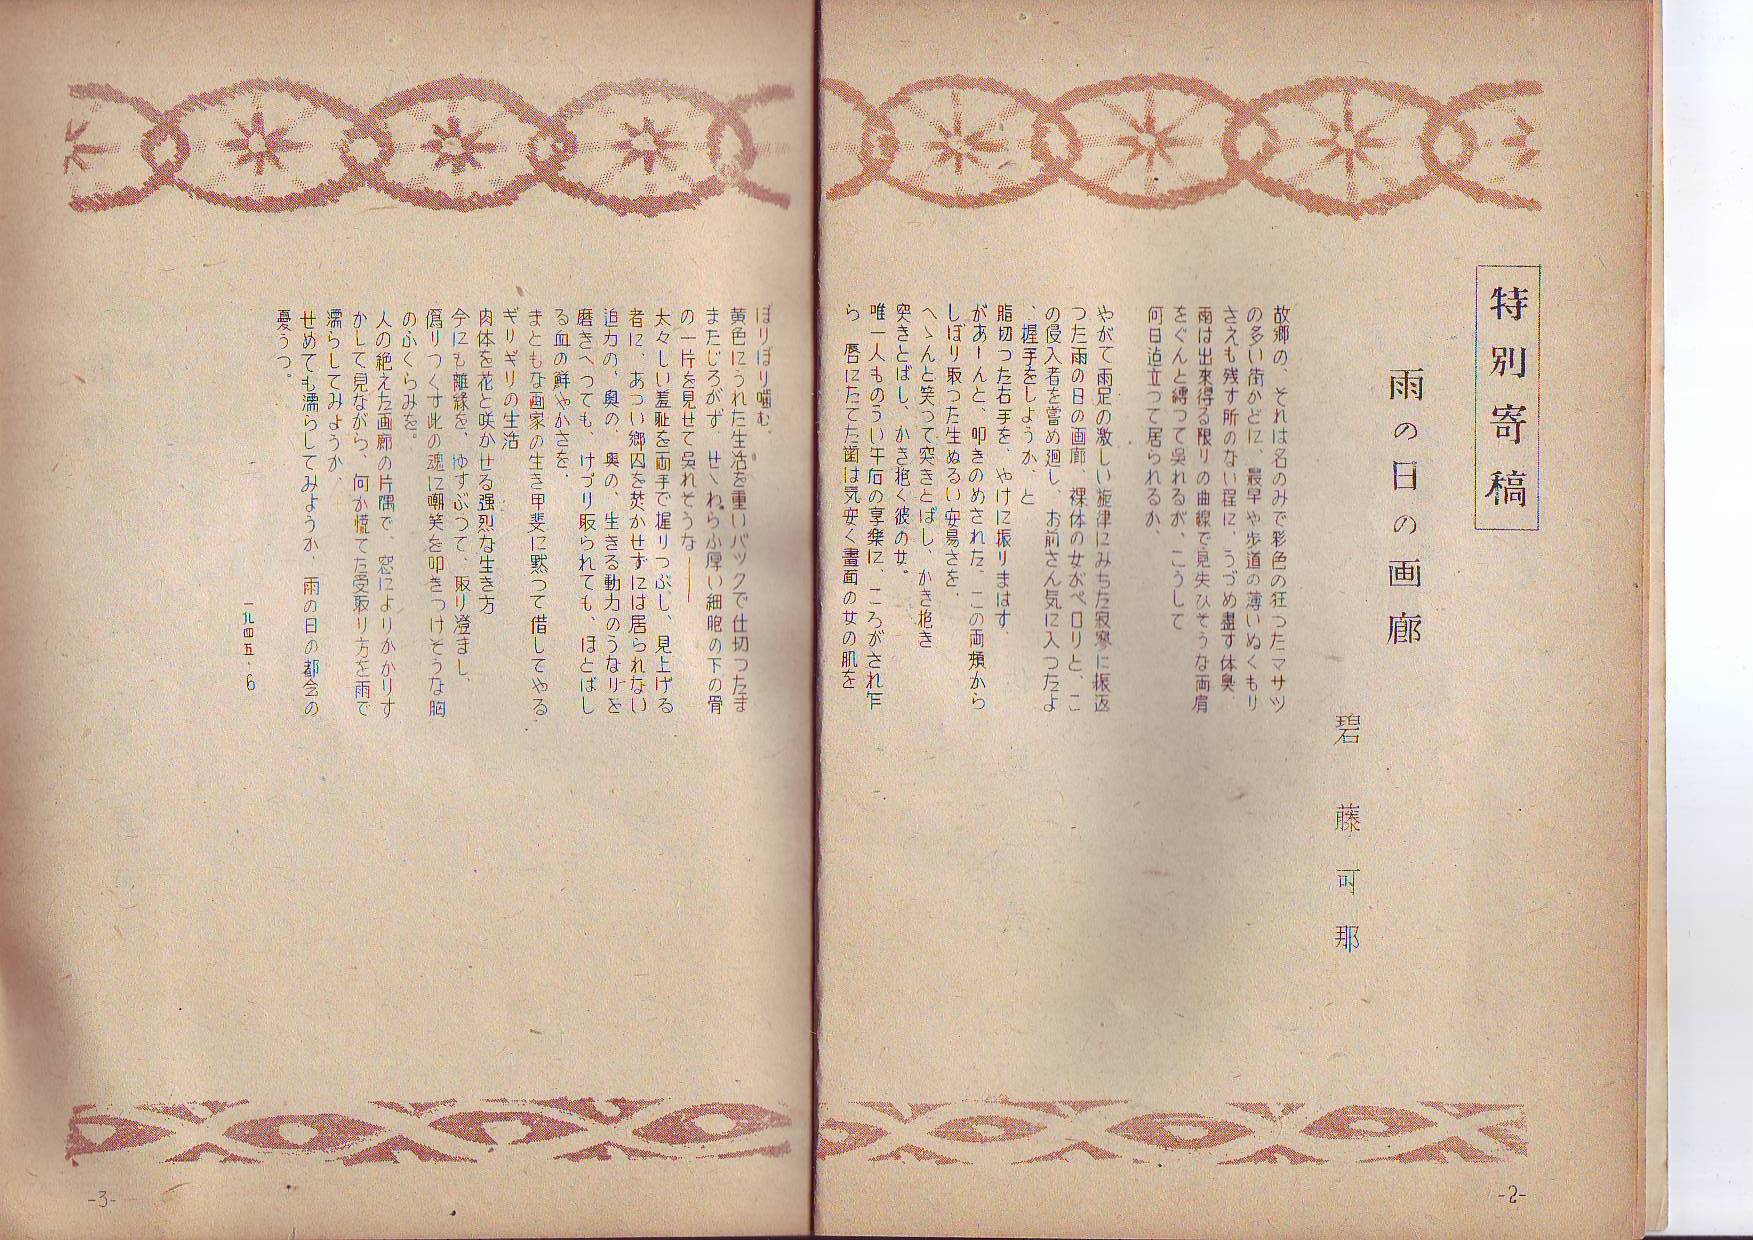 特別寄稿
雨の日の画廊
碧藤可那
故郷の、それは名のみで彩色の狂つたマサツ
の多い街かどに、最早や歩道の薄いぬくもり
さえも残す所のない程に、うづめ盡す体臭
雨は出来得る限りの曲線で見失ひそうな両肩
をぐんと縛つて呉れるが、こうして
何日迄立って居られるか、
やがて雨足の激しい旋律にみちた寂寥に振返
つた雨の日の画廊、裸体の女がペロリと、こ
の侵入者を嘗め廻し、お前さん気に入つたよ
、握手をしようか、と
脂切つた右手を、やけに振りまはす、
があーんと、叩きのめされた、この両頬から
しぼり取つた生ぬるい安易さを、
へゝんと笑って突きとばし、かき抱き
突きとばし、かき抱く彼の女。
唯一人ものうい午后の享樂に、ころがされ乍
ら 唇にたてた歯は気安く畫面の女の肌を
-2-
ぼりぼり噛む、
黄色にうれた生活を重いバックで仕切つたま
まためじろがず、せゝわらふ厚い細胞の下の骨
の一片を見せて呉れそうな――
太々しい羞耻を両手で握りつぶし、見上げる
者に、あつい郷囚を焚かせずには居られない
迫力の、奥の、奥の、生きる動力のうなりを
磨きへつても、けづり取られても、ほとばし
る血の鮮やかさを、
まともな画家の生き甲斐に黙つて借してやる、
ギリギリの生活
肉体を花と咲かせる强烈な生き方
今にも離縁を、ゆすぶつて、取り澄まし、
僞りつくす此の魂に嘲笑を叩きつけそうな胸
のふくらみを。
人の絶えた画廊の片隅で、窓によりかかりす
かして見ながら、何か慌てた受取り方を雨で
濡らしてみようか、
せめても濡らしてみようか、雨の日の都会の
憂うつ。
一九四五・6
-3-